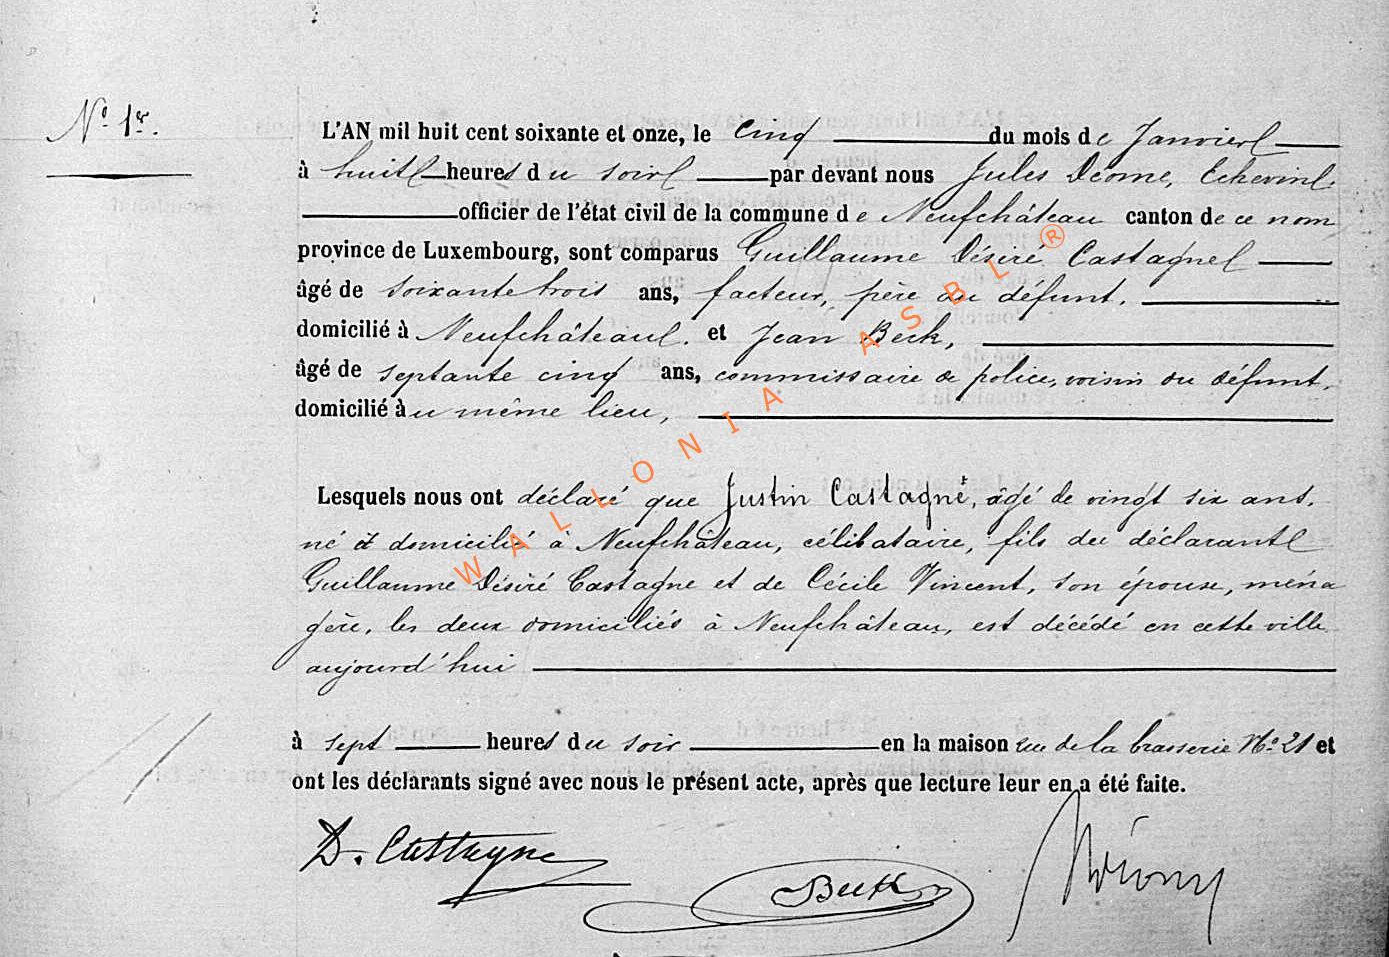 N° 1er.
L'AN mil huit cent soixante et onze, le cinq du mois de Janvier
à huit heures du soir par devant nous Jules Déome, Echevin
officier de l'état civil de la commune de Neufchâteau canton de ce nom
province de Luxembourg, sont comparus Guillaume Désiré Castagne
âgé de soixante trois ans, facteur, père du défunt,
domicilié à Neufchâteau. et Jean Beck,
âgé de septante cinq ans, commissaire de police, voisin du défunt,
domicilié àu même lieu,
Lesquels nous ont déclaré que Justin Castagne, âgé de vingt six ans,
né et domicilié à Neufchâteau, célibataire, fils du déclarant
Guillaume Désiré Castagne et de Cécile Vincent, son épouse, ména
gère, les deux domiciliés à Neufchâteau, est décédé en cette ville
aujourd'hui
à sept heures du soir en la maison rue de la brasserie N° 21 et
ont les déclarants signé avec nous le présent acte, après que lecture leur en a été faite.
D. Castagne
Beck
WALLONIA ASBL ®